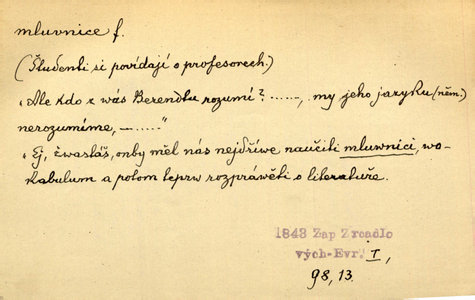 mluvnice f.
(Študenti si povídají o profesorech.)
"Ale kdo z wás Berendtu rozumí? ......, my jeho jazyku (něm.)
nerozumíme, – ......"
"Ej, žwastáš, onby měl nás nejdříwe naučiti mluwnici, wo-
kabulum a potom teprw rozpráwěti o literatuře.
1843 Zap Zrcadlo
vých-Evr. I,
98, 13.